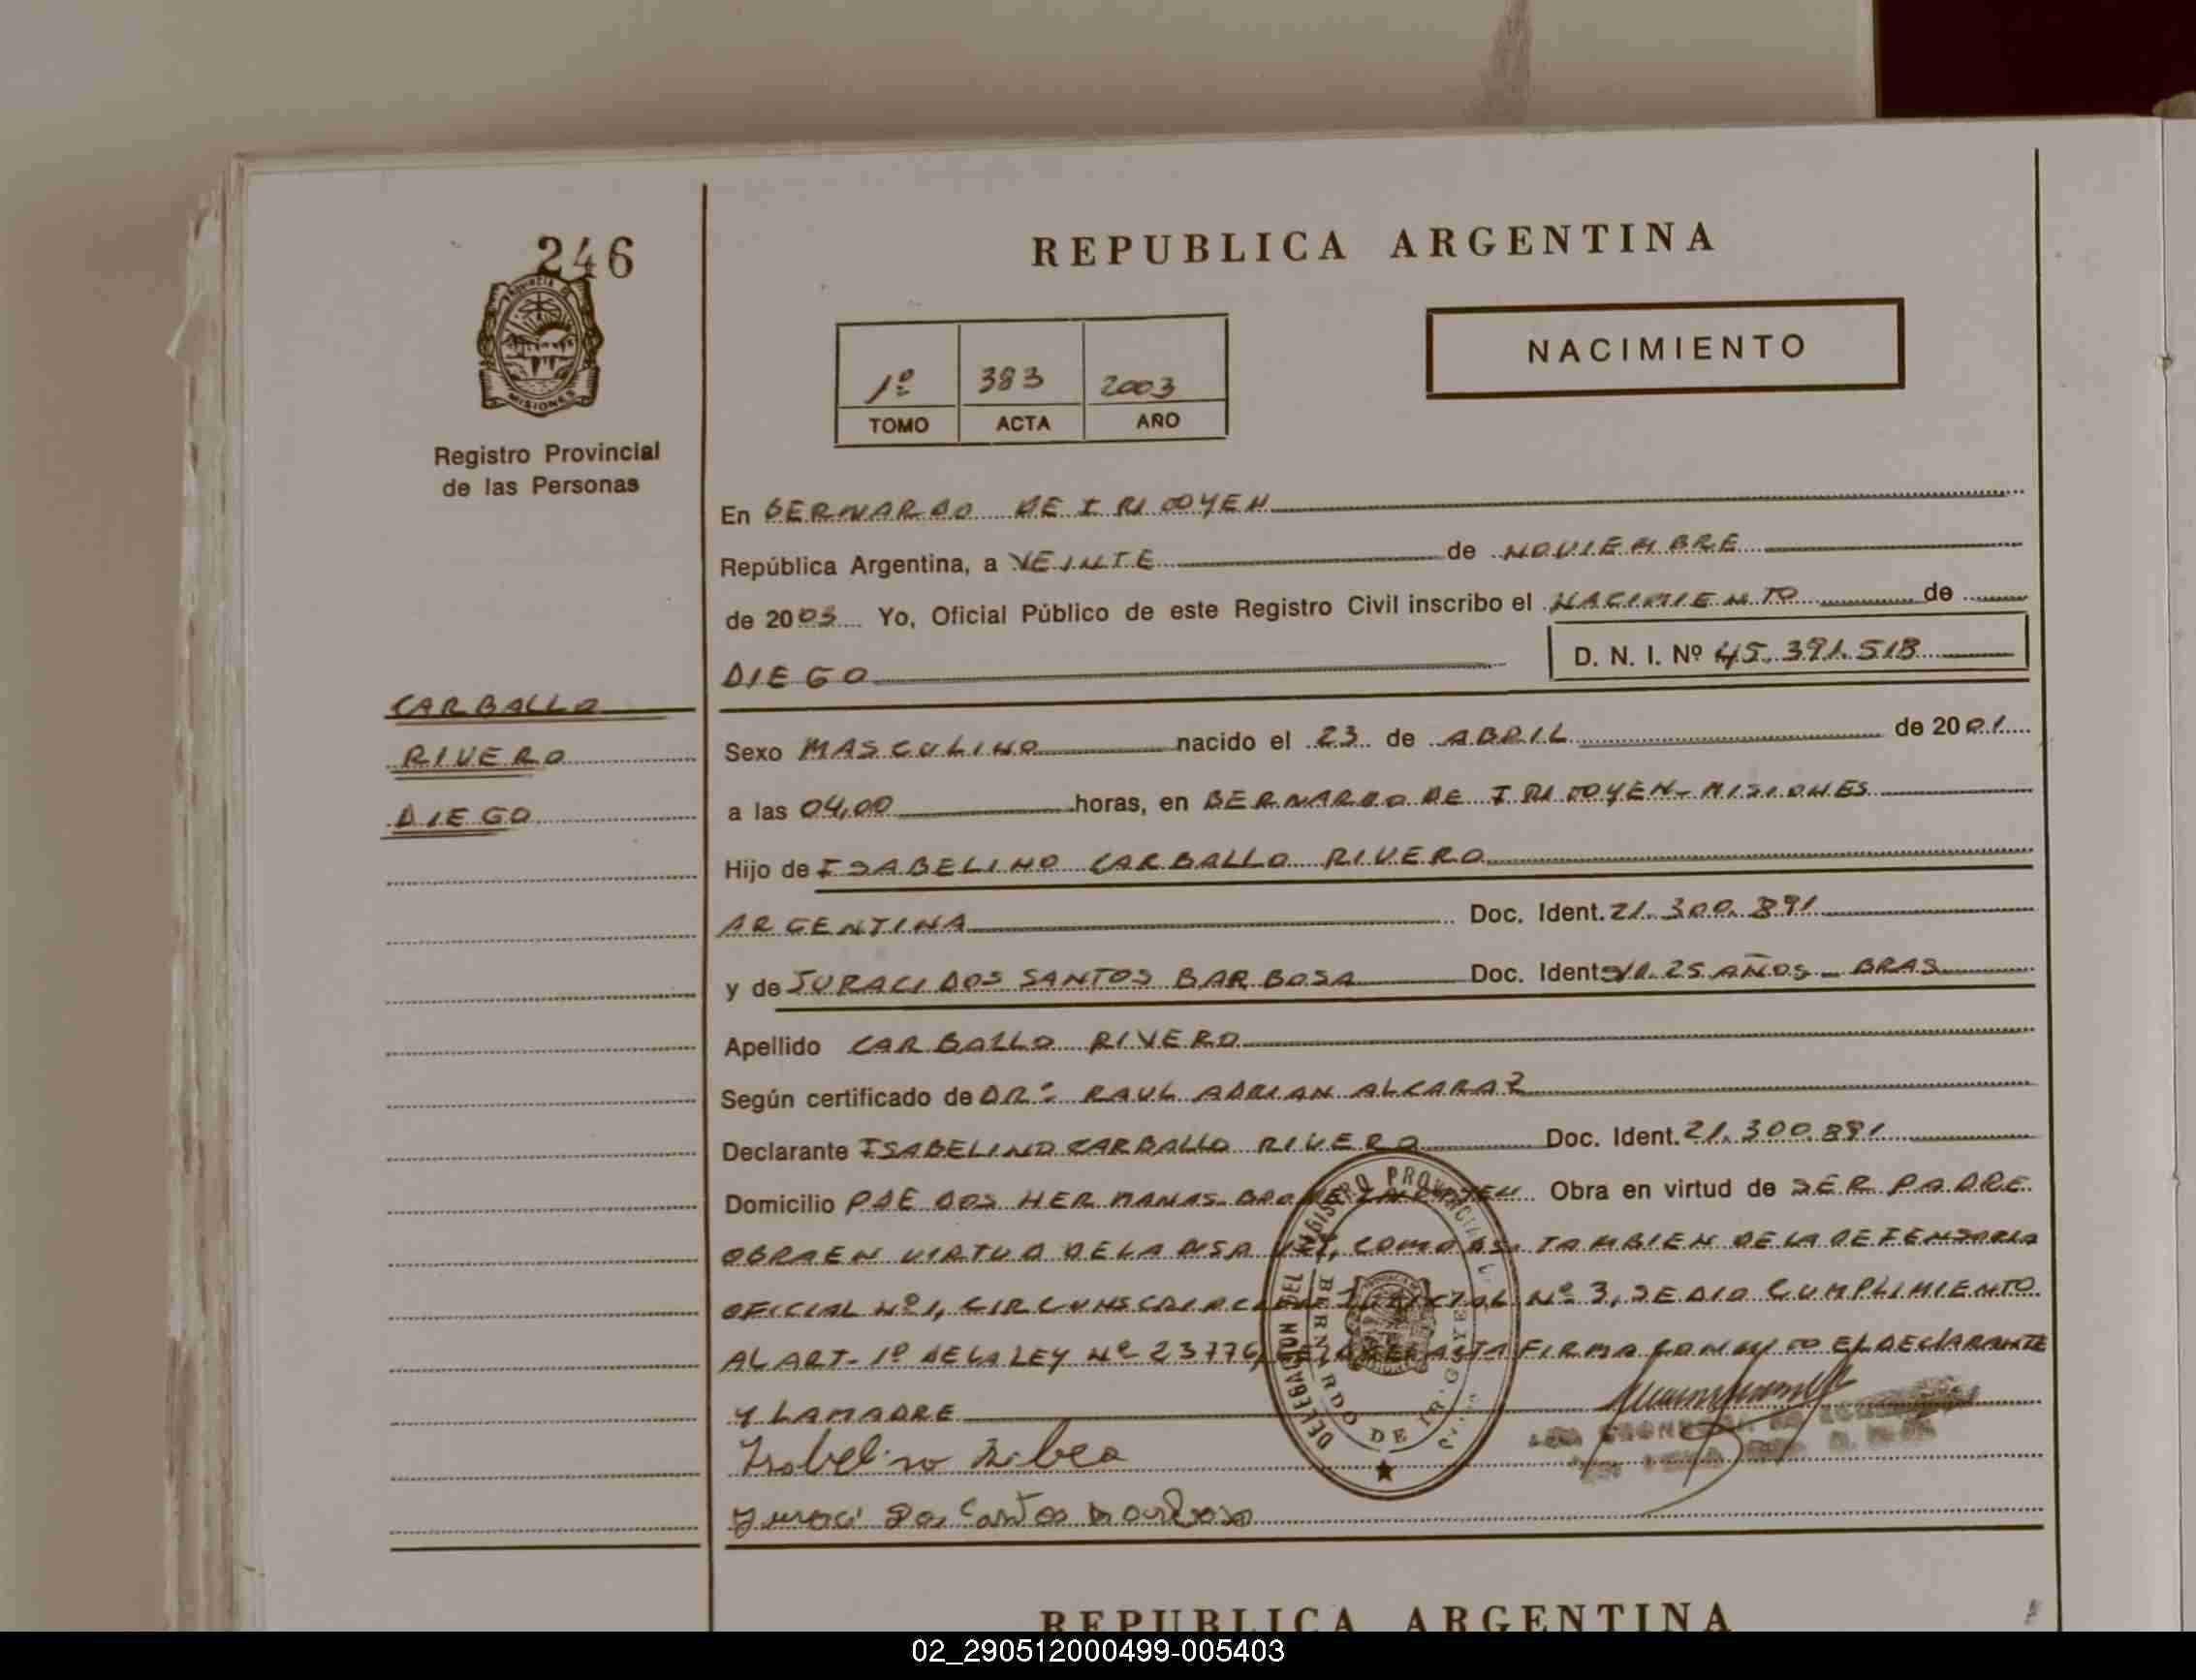 246
PROVINCIA DE
MISIONES
Registro Provincial
de las Personas
CARBALLO
RIVERO
DIEGO
REPUBLICA ARGENTINA
1º 383 2003
TOMO ACTA AÑO
NACIMIENTO
En BERNARDO DE IRIGOYEN
República Argentina, a VEINTE de NOVIEMBRE
de 2003 Yo, Oficial Público de este Registro Civil inscribo el NACIMIENTO de
DIEGO D. N. I. Nº 45.391.518
Sexo MASCULINO nacido el 23 de ABRIL de 2001
a las 04,00 horas, en BERNARDO DE IRIGOYEN- MISIONES
Hijo de ISABELINO CARBALLO RIVERO
ARGENTINA Doc. Ident. 21.300.891
y de JURACI DOS SANTOS BARBOSA Doc. Ident. 25 AÑOS - BRAS
Apellido CARBALLO RIVERO
Según certificado de DR: RAUL ADRIAN ALCARAZ
Declarante ISABELINO CARBALLO RIVERO Doc. Ident. 21.300.891
Domicilio PJE DOS HERMANAS Obra en virtud de SER PADRE
OBRA EN VIRTUD DE LA COMO ASI TAMBIEN DE LA DEFENSORIA
OFICIAL Nº 1, CIRCUNSCRIPCION JUDICIAL Nº 3, SE DIO CUMPLIMIENTO
AL ART- 1º DE LA LEY Nº 23776, FIRMA CONMIGO EL DECLARANTE
Y LA MADRE
DELEGACION DEL REGISTRO PROVINCIAL
BERNARDO DE IRIGOYEN
Juraci Dos Santos
REPUBLICA ARGENTINA
02_290512000499-005403